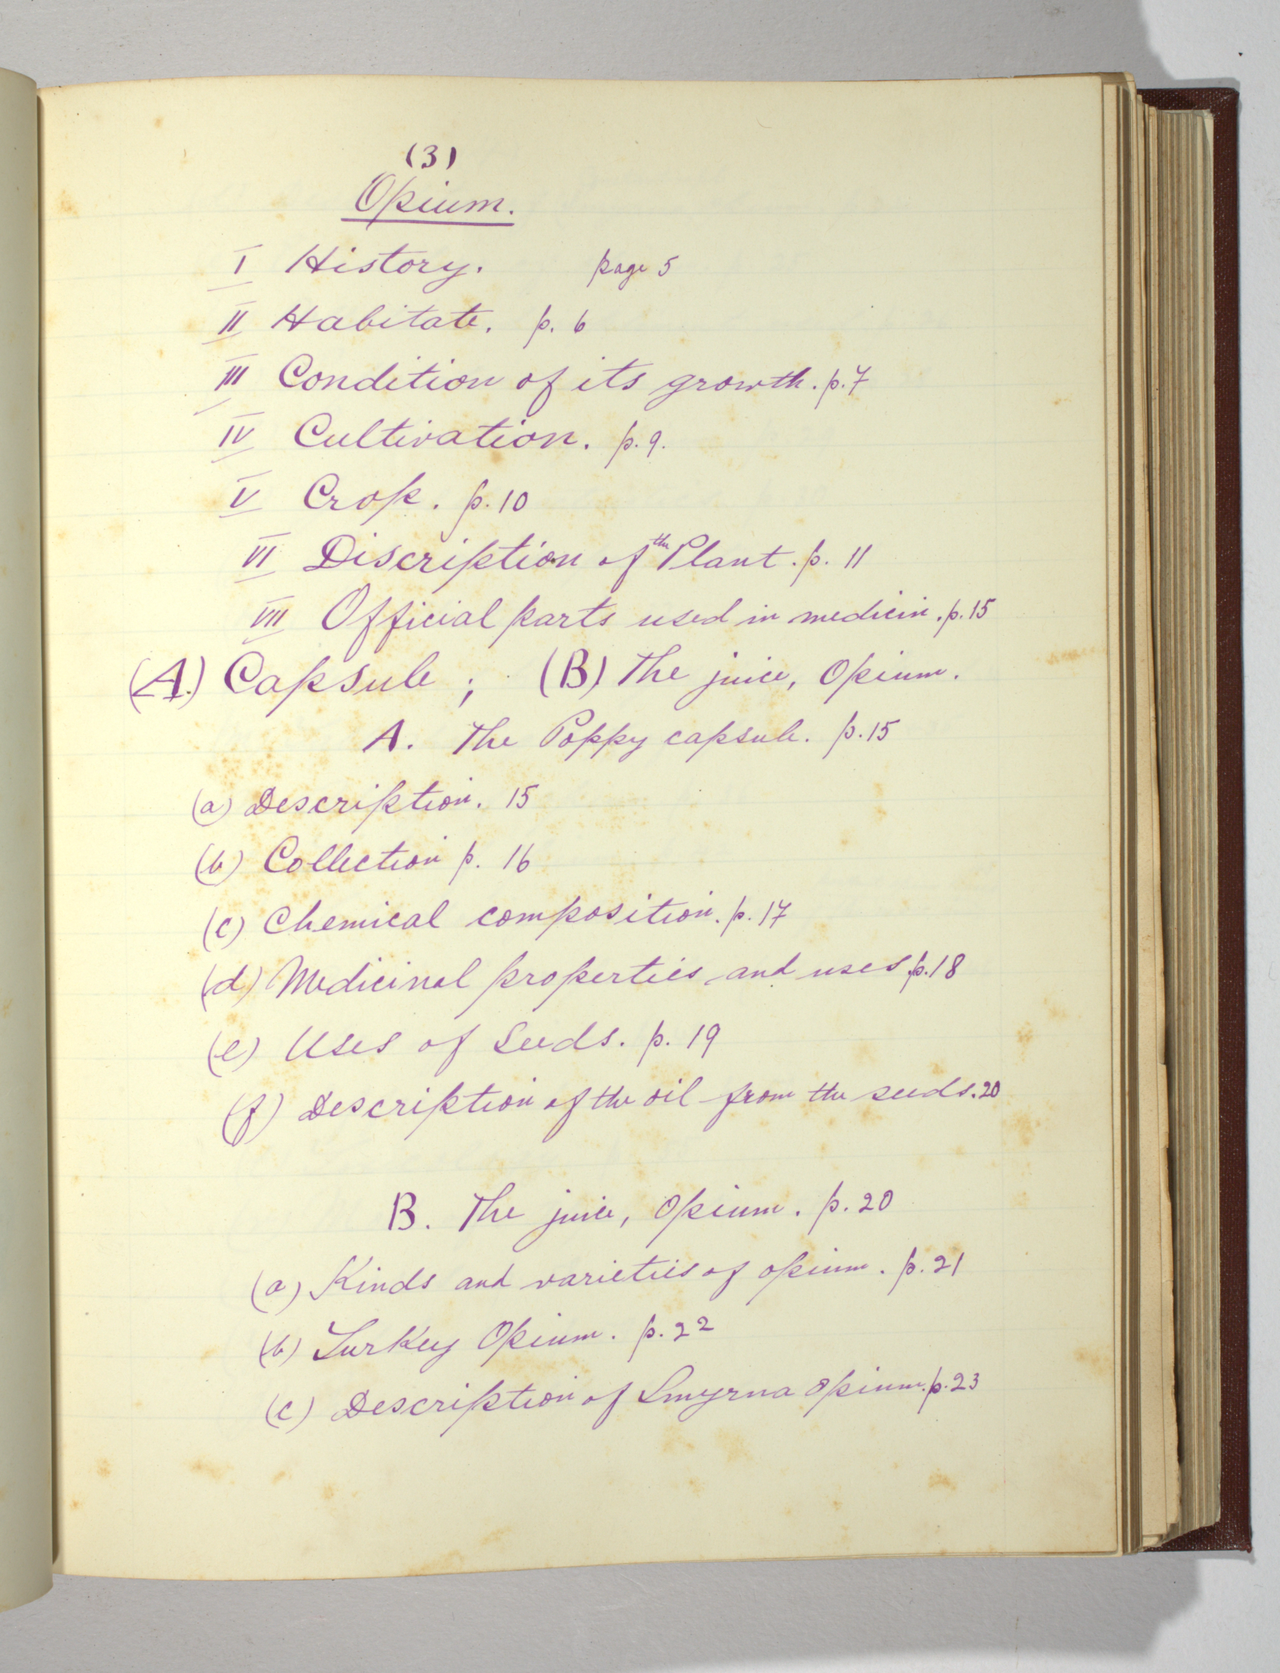 (3)
Opium.
I History. page 5
II Habitate. p. 6
III Condition of its growth. p. 7
IV Cultivation. p. 9.
V Crop. p. 10
VI Discription of the Plant. p. 11
VII Official parts used in medicin. p. 15
(A.) Capsule ; (B) The juice, Opium.
A. The Poppy capsule. p. 15
(a) Description. 15
(b) Collection p. 16
(c) Chemical composition. p. 17
(d) Medicinal properties and uses p. 18
(e) Uses of Seeds. p. 19
(f) Description of the oil from the seeds. 20
B. The juice, Opium. p. 20
(a) Kinds and varieties of opium. p. 21
(b) Turkey Opium. p. 22
(c) Description of Smyrna opium. p. 23